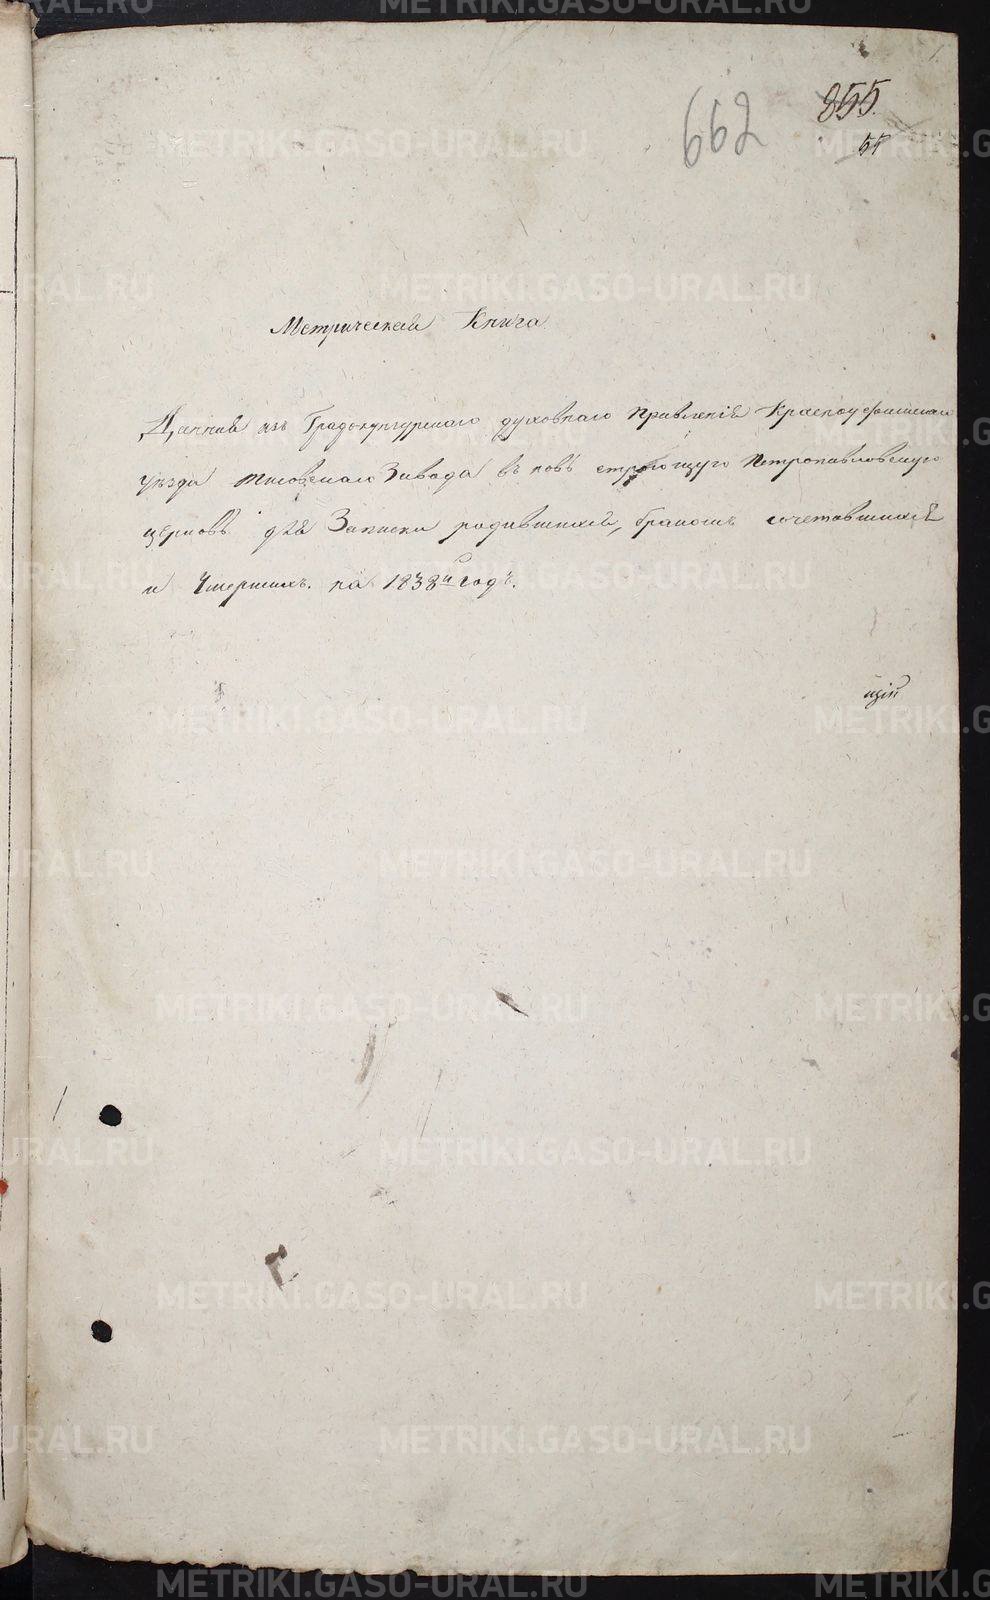 662
855.
55
Метрическая Книга
Данная изъ Градокунгурскаго духовнаго Правленія Красноуфимскаго
уѣзда Тисовскаго Завода въ новѣ строющуюся Петропавловскую
церковь для Записки родившихся, бракомъ сочетавшихся
и Умершихъ. на 1838й годъ.
щій
METRIKI.GASO-URAL.RU